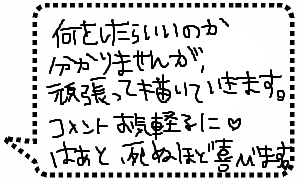 何をしたらいいのか
分かりませんが、
頑張って描いていきます。
コメントお気軽に♡
はあと、死ぬほど喜びます。